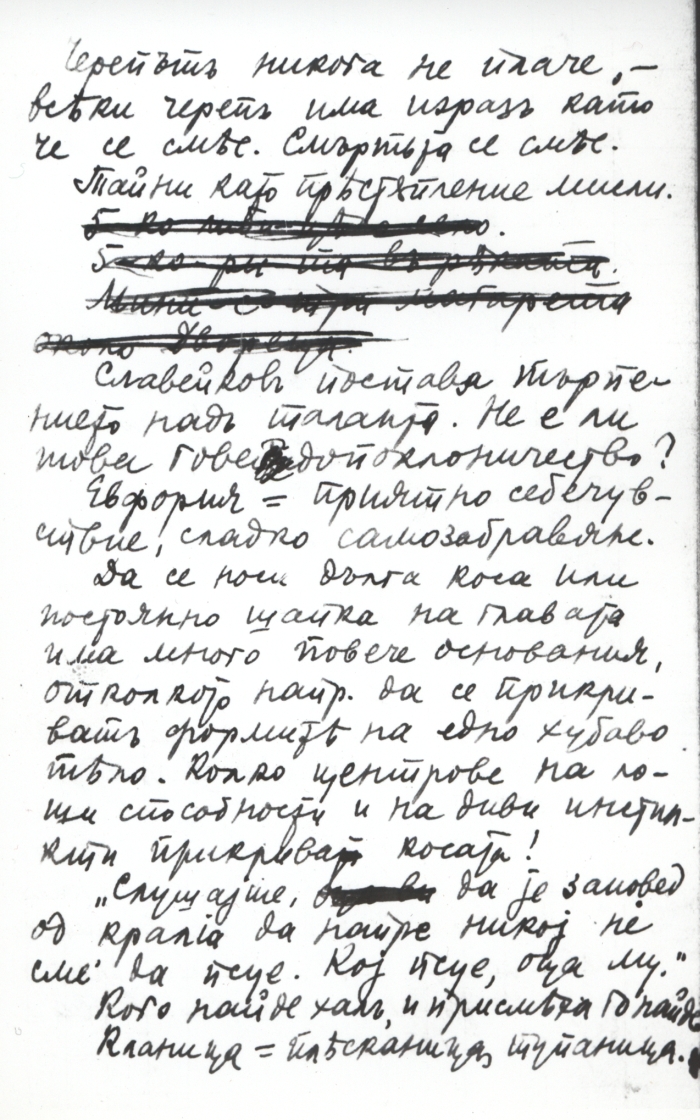 Черепътъ никога не плаче, –
всѣки черепъ има изразъ като
че се смѣе. Смъртьта се смѣе.
Тайни като прѣстѫпление мисли.
Славейковъ поставя търпе-
нието надъ таланта. Не е ли
това говедопоклоничество?
Евфория = приятно себечув-
ствие, сладко самозабравяне.
Да се носи дълга коса или
постоянно шапка на главата
има много повече основания,
отколкото напр. да се прикри-
ватъ формитѣ на едно хубаво
тѣло. Колко центрове на ло-
ши способности и на диви инстин-
кти прикриватъ косата!
„Слушајте, да је заповед
од краліа да напре никој не
сме да псуе. Кој псуе, оца му.“
Кого найде халъ, и присмѣха го найде
Кланица = плѣсканица, тупаница.